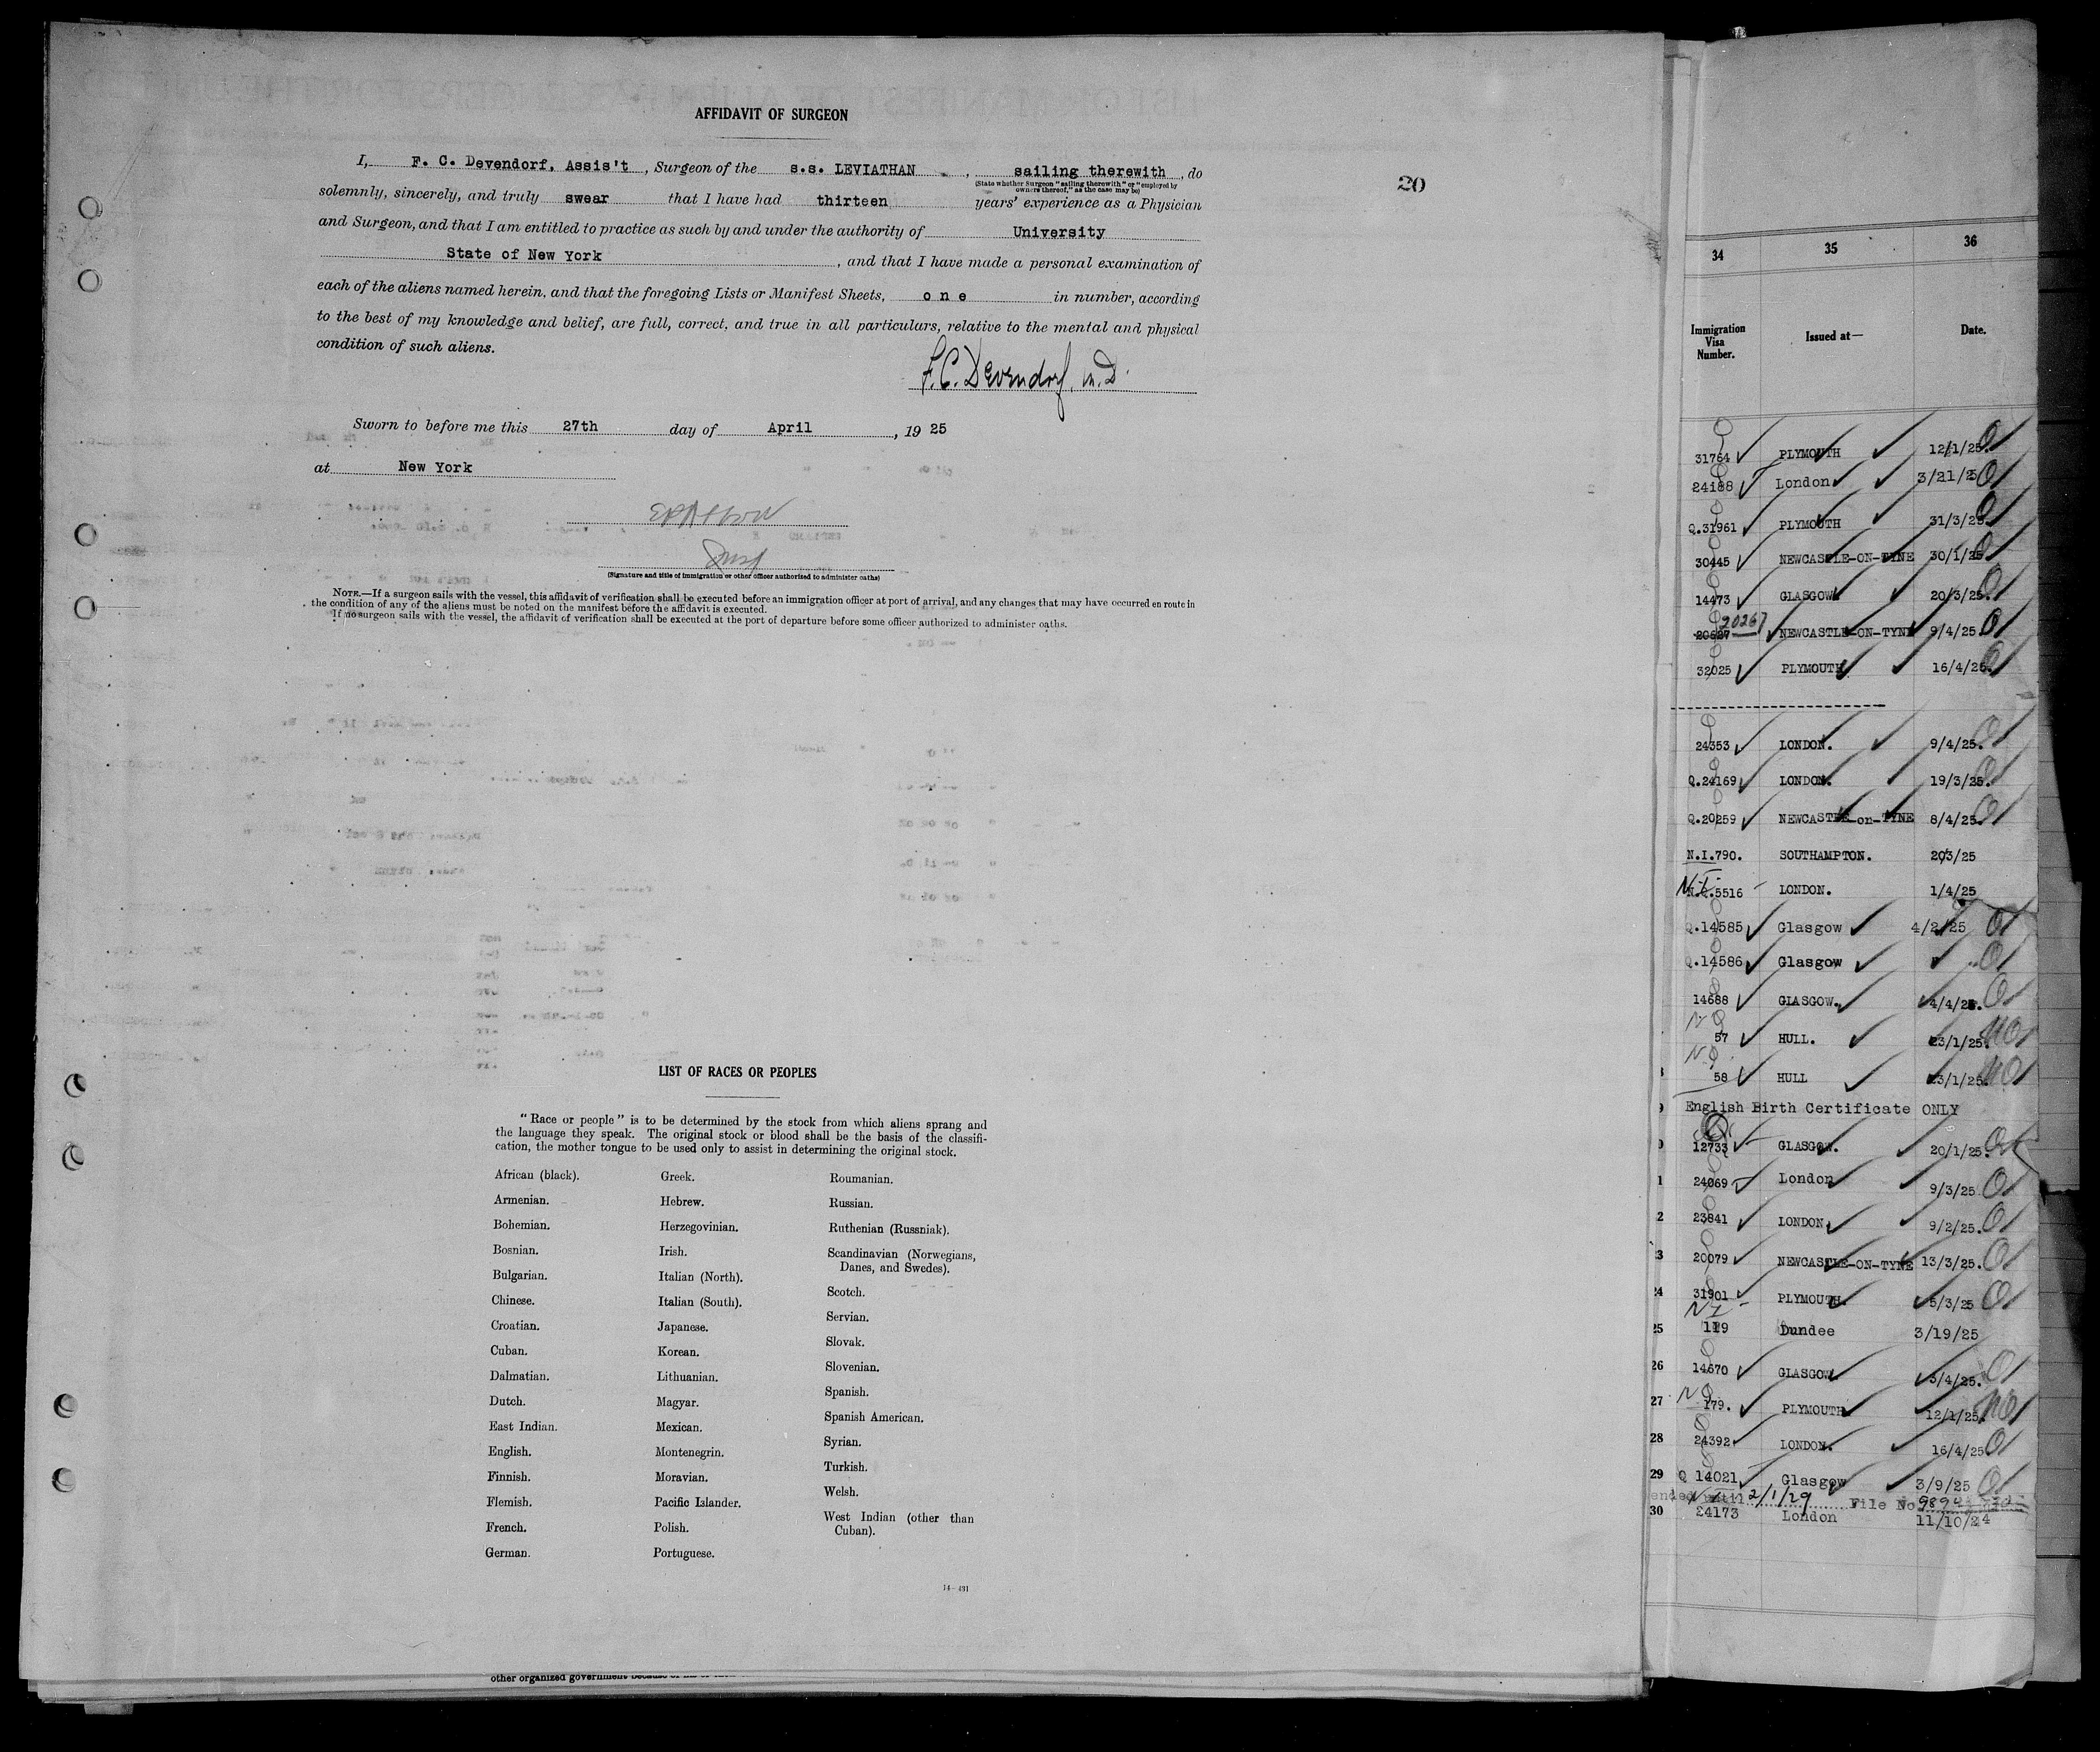 AFFIDAVIT OF SURGEON
I, F. C. Devendorf, Assis't , Surgeon of the s.s. LEVIATHAN , sailing therewith , do
(State whether Surgeon "sailing therewith" or "employed by
owners thereof," as the case may be)
solemnly, sincerely, and truly swear that I have had thirteen years' experience as a Physician
and Surgeon, and that I am entitled to practice as such by and under the authority of University
State of New York , and that I have made a personal examination of
each of the aliens named herein, and that the foregoing Lists or Manifest Sheets, one in number, according
to the best of my knowledge and belief, are full, correct, and true in all particulars, relative to the mental and physical
condition of such aliens.
F.C. Devendorf, M.D.
Sworn to before me this 27th day of April , 19 25
at New York
(Signature and title of immigration or other officer authorized to administer oaths)
NOTE.—If a surgeon sails with the vessel, this affidavit of verification shall be executed before an immigration officer at port of arrival, and any changes that may have occurred en route in
the condition of any of the aliens must be noted on the manifest before the affidavit is executed.
If no surgeon sails with the vessel, the affidavit of verification shall be executed at the port of departure before some officer authorized to administer oaths.
LIST OF RACES OR PEOPLES
"Race or people" is to be determined by the stock from which aliens sprang and
the language they speak. The original stock or blood shall be the basis of the classifi-
cation, the mother tongue to be used only to assist in determining the original stock.
African (black).
Armenian.
Bohemian.
Bosnian.
Bulgarian.
Chinese.
Croatian.
Cuban.
Dalmatian.
Dutch.
East Indian.
English.
Finnish.
Flemish.
French.
German.
Greek.
Hebrew.
Herzegovinian.
Irish.
Italian (North).
Italian (South).
Japanese.
Korean.
Lithuanian.
Magyar.
Mexican.
Montenegrin.
Moravian.
Pacific Islander.
Polish.
Portuguese.
Roumanian.
Russian.
Ruthenian (Russniak).
Scandinavian (Norwegians,
Danes, and Swedes).
Scotch.
Servian.
Slovak.
Slovenian.
Spanish.
Spanish American.
Syrian.
Turkish.
Welsh.
West Indian (other than
Cuban).
14-431
other organized government because of his or
20
34 35 36
Immigration Visa Number. Issued at— Date.
31764 PLYMOUTH 12/1/25
24188 London 3/21/25
Q.31961 PLYMOUTH 31/3/25
30445 NEWCASTLE-ON-TYNE 30/1/25
14473 GLASGOW 20/3/25.
20267
20627 NEWCASTLE-ON-TYNE 9/4/25.
32025 PLYMOUTH 16/4/25.
24353 LONDON. 9/4/25.
Q.24169 LONDON. 19/3/25.
Q.20259 NEWCASTLE-on-TYNE 8/4/25.
N.I.790. SOUTHAMPTON. 20/3/25
N.I.
5516 LONDON. 1/4/25
Q.14585 Glasgow 4/2/25
Q.14586 Glasgow " "
14688 GLASGOW. 4/4/25.
NQ
57 HULL. 23/1/25.
NQ
58 HULL 23/1/25.
English Birth Certificate ONLY
12733 GLASGOW. 20/1/25.
24069 London 9/3/25
22 23841 LONDON. 9/2/25.
23 20079 NEWCASTLE-ON-TYNE 13/3/25.
24 31901 PLYMOUTH. 5/3/25
NI
25 119 Dundee 3/19/25
26 14670 GLASGOW. 3/4/25.
27 NQ 179. PLYMOUTH 12/1/25.
28 24392 LONDON. 16/4/25
29 Q 14021 Glasgow 3/9/25
ended until 2/1/29 File No.
30 24173 London 11/10/24